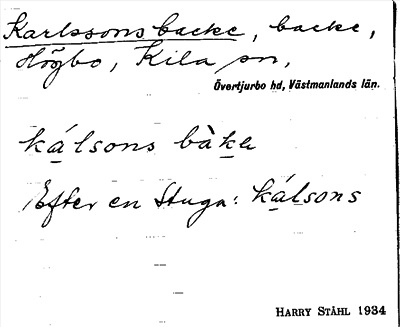 Karlssons backe, backe,
Högbo, Kila sn,
Övertjurbo hd, Västmanlands län.
kálsons bàkɐ
Efter en stuga: kálsons
HARRY STÅHL 1934